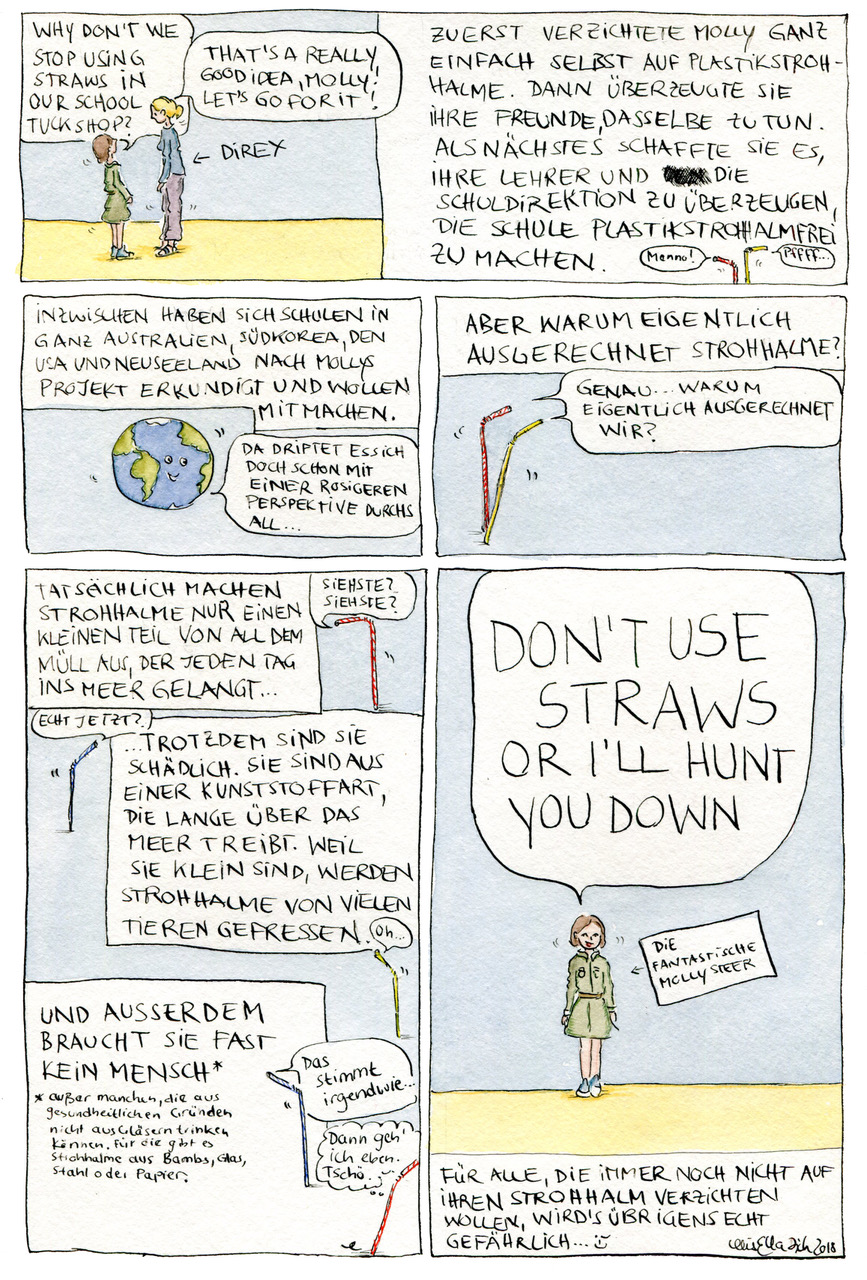 WHY DON'T WE
STOP USING
STRAWS IN
OUR SCHOOL
TUCKSHOP?
THAT'S A REALLY
GOOD IDEA, MOLLY!
LET'S GO FOR IT!
← DIREX
ZUERST VERZICHTETE MOLLY GANZ
EINFACH SELBST AUF PLASTIKSTROH-
HALME. DANN ÜBERZEUGTE SIE
IHRE FREUNDE, DASSELBE ZU TUN.
ALS NÄCHSTES SCHAFFTE SIE ES,
IHRE LEHRER UND DIE
SCHULDIREKTION ZU ÜBERZEUGEN,
DIE SCHULE PLASTIKSTROHHALMFREI
ZU MACHEN.
Menno!
Pffff...
INZWISCHEN HABEN SICH SCHULEN IN
GANZ AUSTRALIEN, SÜDKOREA, DEN
USA UND NEUSEELAND NACH MOLLYS
PROJEKT ERKUNDIGT UND WOLLEN
MITMACHEN.
DA DRIFTET ES SICH
DOCH SCHON MIT
EINER ROSIGEREN
PERSPEKTIVE DURCHS
ALL...
ABER WARUM EIGENTLICH
AUSGERECHNET STROHHALME?
GENAU... WARUM
EIGENTLICH AUSGERECHNET
WIR?
TATSÄCHLICH MACHEN
STROHHALME NUR EINEN
KLEINEN TEIL VON ALL DEM
MÜLL AUS, DER JEDEN TAG
INS MEER GELANGT...
SIEHSTE?
SIEHSTE?
ECHT JETZT?
...TROTZDEM SIND SIE
SCHÄDLICH. SIE SIND AUS
EINER KUNSTSTOFFART,
DIE LANGE ÜBER DAS
MEER TREIBT. WEIL
SIE KLEIN SIND, WERDEN
STROHHALME VON VIELEN
TIEREN GEFRESSEN.
Oh...
UND AUSSERDEM
BRAUCHT SIE FAST
KEIN MENSCH*
* außer manchen, die aus
gesundheitlichen Gründen
nicht aus Gläsern trinken
können. Für die gibt es
Strohhalme aus Bambus, Glas,
Stahl oder Papier.
Das
stimmt
irgendwie...
Dann geh'
ich eben.
Tschö...
DON'T USE
STRAWS
OR I'LL HUNT
YOU DOWN
DIE
← FANTASTISCHE
MOLLY STEER
FÜR ALLE, DIE IMMER NOCH NICHT AUF
IHREN STROHHALM VERZICHTEN
WOLLEN, WIRD'S ÜBRIGENS ECHT
GEFÄHRLICH...
2018